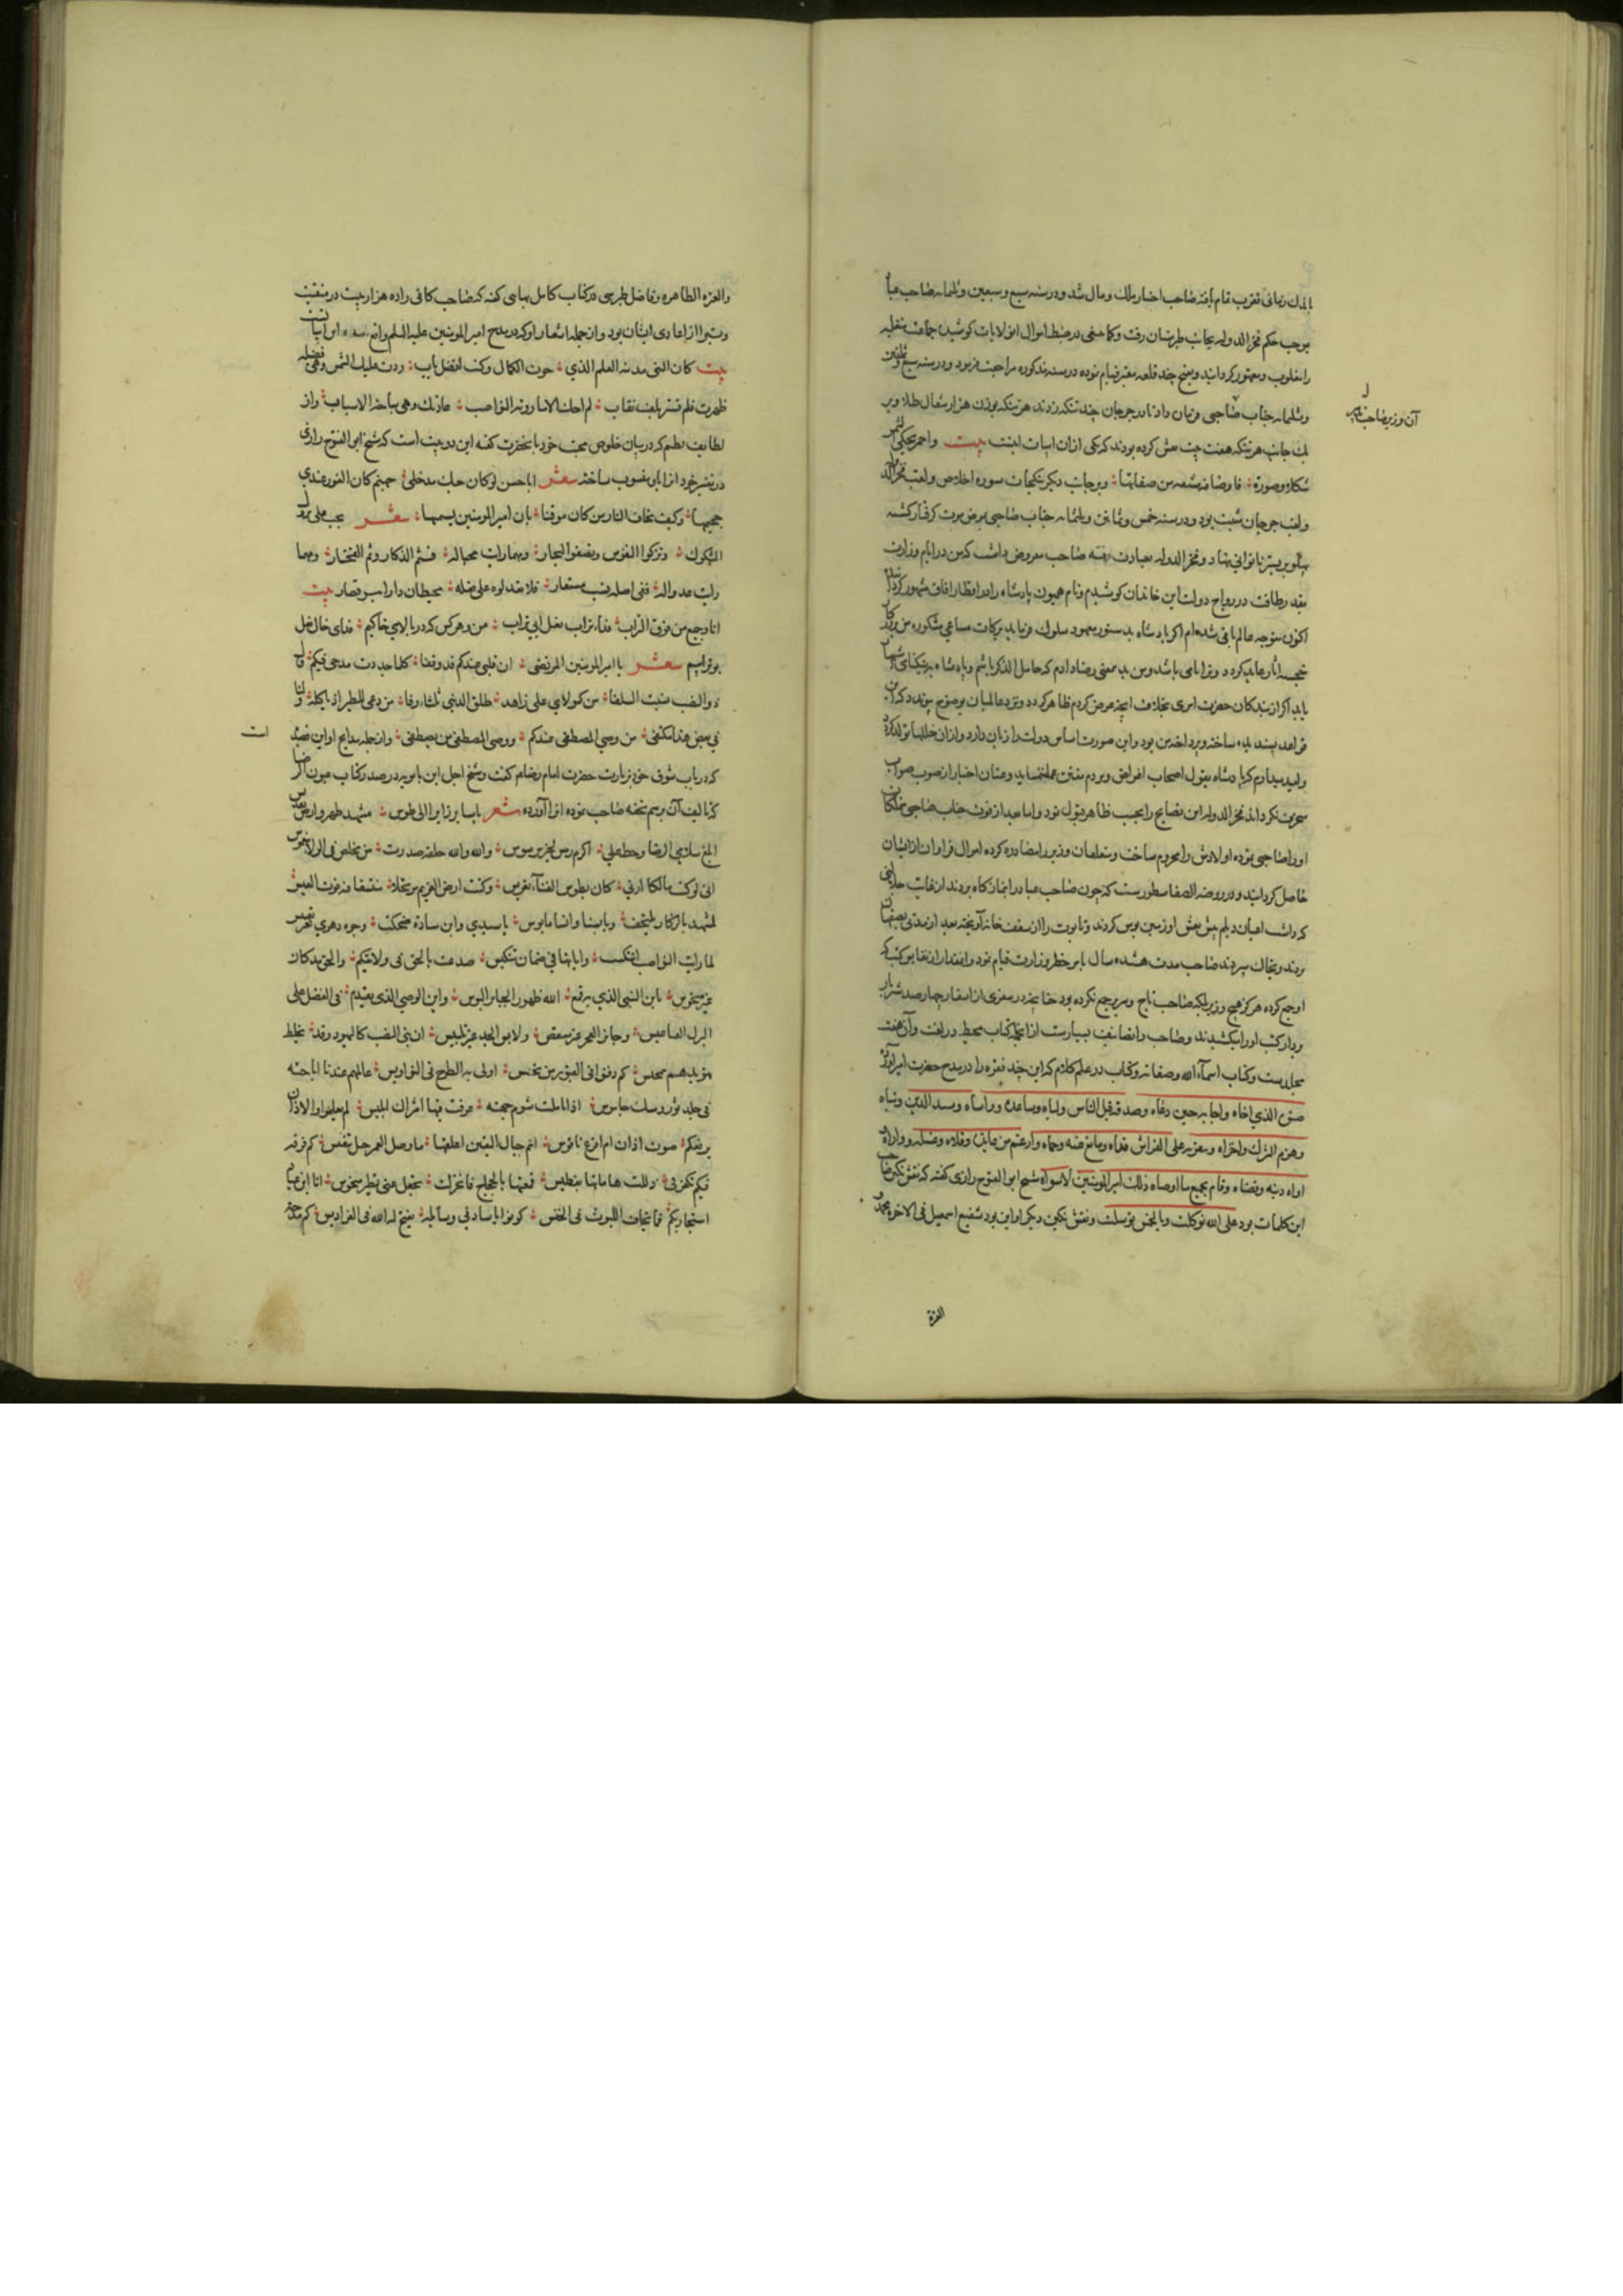 باندك زمانی تقرب تمام یافته صاحب اختیار ملك و مال شد و در سنه سبع و سبعین و ثلثمایه صاحب عباد
بر حسب حكم فخر الدوله بجانب طبرستان رفت و كما ینبغی در ضبط اموال ان ولایات كوشیده جماعت متغلبه
را مغلوب و مقهور كردانید و بفتح چند قلعه معتبر قیام نموده در سنه مذكوره مراجعت فرمود و در سنه سبع
و ثلثمایه جناب صاحبی فرمان داد تا در جرجان چند تنكه زدند هر تنكه بوزن هزار مثقال طلا و بر
یك جانب هر تنكه هفت بیت نقش كرده بودند كه یكی از ان ابیات اینست بیت و احمر یحكی الشمس
شكلا و صورة فاوصافه مشتقه من صفاتها و بر جانب دیكر تنكجات سوره اخلاص و لقب فخر الدوله
و لقب جرجان ثبت بود و در سنه خمس و ثمانین و ثلثمایه جناب صاحبی بمرض موت كرفتار كشته
پهلو بر بستر ناتوانی نهاد و فخر الدوله بعیادت رفته صاحب معروض داشت كه من در ایام وزارت
بقدر طاقت در رواج دولت این خاندان كوشیدم و نام همیون پادشاه را در اقطار افاق مشهور كردانیدم
اكنون متوجه عالم باقی شده ام اكر پادشاه بدستور معهود سلوك فرماید بركات مساعی مشكوره من بروزكار
خجسته اثار عاید كردد و نرا نامی باشد و من بدین معنی رضا دادم كه خامل الذكر باشم و پادشاه به نیكنامی
یابد اكر از بندكان حضرت امری بخلاف انچه عرض كردم ظاهر كردد و نزد عالمیان بوضوح پیوندد كه آن
قواعد پسندیده ساخته و پرداخته من بود و این صورت اساس دولت را زیان دارد و از ان خللها تولد كند
و امید میدارم كه پادشاه بقول اصحاب اغراض و مردم مفتن عمل ننماید و عنان اختیار از صوب صواب
منحرف نكرداند فخر الدوله این نصایح را بحسب ظاهر قبول نمود و اما بعد از فوت جناب صاحبی متملكات
او را ضاحبی نموده اولادش را محروم ساخت و متعلقان وزیر را مصادره كرده اموال فراوان از ایشان
حاصل كردانید و در روضه الصفا مسطورست كه چون صاحب عباد را بنماز كاه بردند از غایت جلالتی
كه داشت اعیان دیلم پیش نعش او زمین بوس كردند و تابوت را از سقف خانه آویخته بعد از مدتی بصفهان
بردند و بخاك سپردند صاحب مدت هشده سال بامر خطیر وزارت قیام نمود و انمقدار از نفایس كتب كه
او جمع كرده هركز هیچ وزیر بلكه صاحب تاج و سریر جمع نكرده بود چنانچه در سفری از اسفار چهار صد شتر بار
بردار كتب او را میكشیدند و صاحب را تصانیف بسیارست از انجمله كتاب محیط در لغت و آن هفت
مجلدست و كتاب اسماء الله و صفاته و كتاب در علم كلام كه این چند فقره را در مدح حضرت امیر آورده
صنوه الذی اخاه و اجابه حین دعاه و صدقه قبل الناس و لباه و ساعده و واساه و سدد الدین و بناه
و هزم الشرك و اخزاه و بنفسه علی الفراش فداه و مانع عنه و حماه و ارغم من عانده و قلاه و غسله و واراه
و ادی دینه و قضاه و قام بجمیع ما اوصاه ذلك امیر المومنین لا سواه شیخ ابو الفتوح رازی كفته كه نقش نكین صاحب
این كلمات بود علی الله توكلت و بالخمس توسلت و نقش نكین دیكر او این بود شفیع اسمعیل فی الاخره محمد و
العترة
آن وزیر صاحب
و العتره الطاهره و فاضل طبرسی در كتاب كامل بهایی كفته كه صاحب كافی را ده هزار بیت در منقبت
و تبرا از اعادی ایشان بود و از جمله اشعار او كه در مدح امیر المومنین علیه السلم واقع شده این ابیات
بیت كان النبی مدینه العلم الذی حوت الكمال و كنت افضل باب ردت علیك الشمس و هی فضیله
ظهرت فلم تستر بلف نقاب لم احك الا ما روته النواصب عادتك و هی مباحه الاسباب و از
لطایف نظم كه در بیان خلوص محبت خود بانحضرت كفته این دو بیت است كه شیخ ابو الفتوح رازی
در تفسیر خود انرا باو منسوب ساخته شعر ابا حسن لو كان حبك مدخلی جهنم كان الفوز عندی
جحیمها و كیف یخاف النار من كان موقنا بان امیر المومنین قسیمها شعر بحب علی تزول
الشكوك و تزكوا النفوس و یصفوا النجار و مهما رایت محبا له فثم الذكاء و ثم الفخار و مهما
رایت عدوا له ففی اصله نسب مستعار فلا تعذلوه علی فعله فحیطان دار ابیه قصار بیت
انا و جمیع من فوق التراب فداء تراب نعل ابی تراب من و هر كس كه در بالای خاكیم فدای خاك نعل
بوترابیم شعر یا امیر المومنین المرتضی ان قلبی عندكم قد وقفا كلما جددت مدحی فیكم قال
ذو النصب نسیت السلفا من كمولای علی زاهد طلق الدنیا ثلثا و وفا من دعی للطیر ان یاكله و لنا
فی بعض هذا مكتفی من وصی المصطفی عندكم و وصی المصطفی من یصطفی و از جمله مدایح او این قصیده
ات
كه در باب شوق خود بزیارت حضرت امام رضا ع كفته و شیخ اجل ابن بابویه در صدر كتاب عیون اخبار الرضا
كه تالیف آن برسم تحفه صاحب نموده انرا آورده شعر یا سایرا زایرا الی طوس مشهد طهر و ارض تقدیس
ابلغ سلامی الرضا و حط علی اكرم رمس لخیر مرموس و الله و الله حلفه صدرت من مخلص فی الولاء مغموس
انی لو كنت مالكا اربی كان بطوس الفناء تعریسی و كنت امضی العزیم مرتحلا منتسفا فیه قوت العیس
لمشهد بالذكاء ملتحف و بالسنا و الثنا مانوس یا سیدی و ابن سادة ضحكت وجوه دهری
لما رایت النواصب انتكست و رایاتها فی ضمان تنكیس صدعت بالحق فی ولائكم و الحق مذ كان
غیر منحوس یا ابن النبی الذی به قمع الله ظهور الجبابر الشوس و ابن الوصی الذی تقدم فی الفضل علی
البزل القناعیس و حایز الفخر غیر منتقص و لابس المجد غیر تلبیس ان بنی النصب كالیهود و قد یخلط
تهویدهم بتمجیس كم دفنوا فی القبور من نجس اولی به الطرح فی النواویس عالمهم عندما اباحثه
فی جلد ثور و مسك جاموس اذا تاملت شوم جبهته عرفت فیها اشتراك ابلیس لم یعلموا و الاذان
یرفعكم صوت اذان ام قرع ناقوس انتم حبال الیقین اعلقها ما وصل العمر حبل تنفیس كم فرقه
فیكم تكفرنی ذللت هاماتها بفطیس قمعتها بالحجاج فانخذلت تجفل عنی بطیر منحوس انا ابن عباد
استجار بكم فما یخاف اللیوث فی الخیس كونوا ایا سادتی وسایله یفسح له الله فی الفرادیس كم مدحة